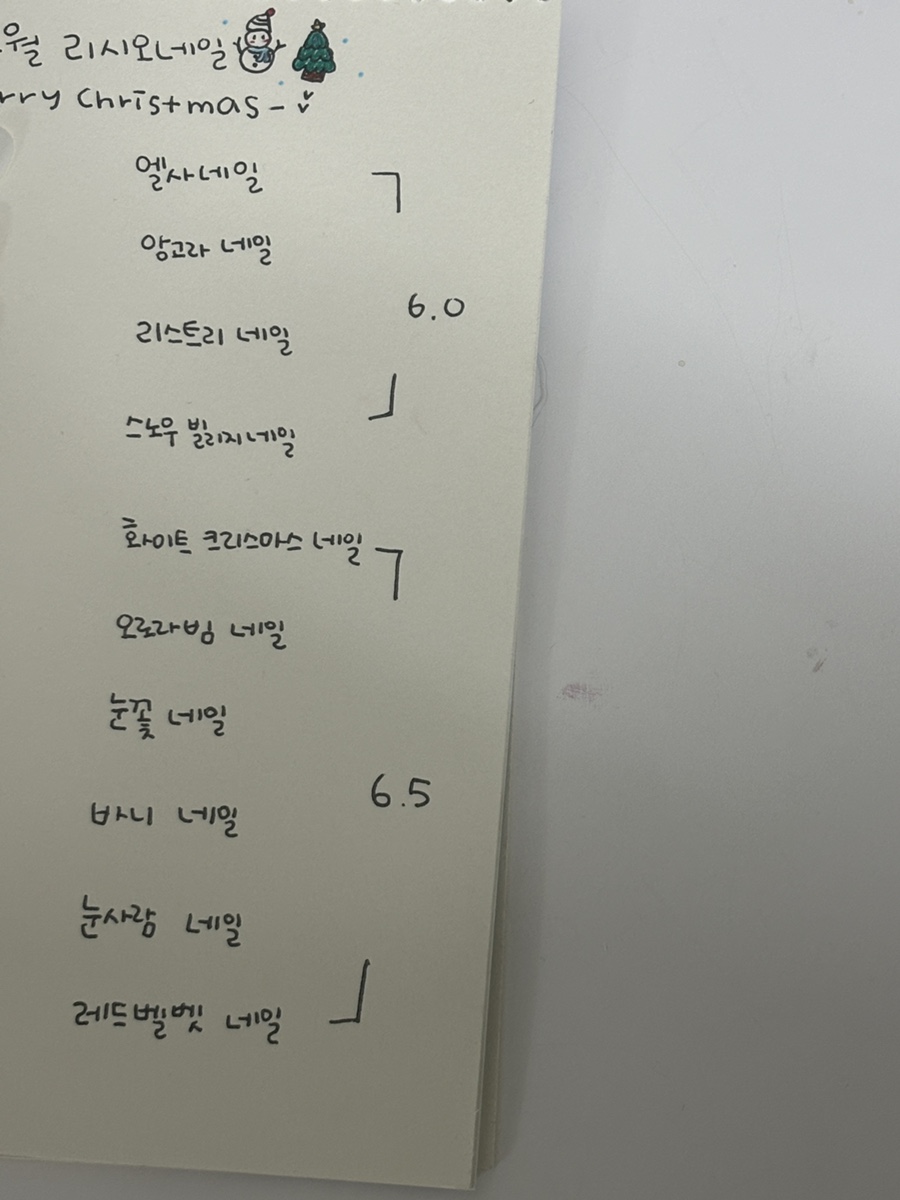 월 리시오네일
rry Christmas-
엘사네일
앙고라 네일
6.0
리스트리 네일
스노우 빌리지네일
화이트 크리스마스 네일
오로라빔 네일
눈꽃 네일
6.5
바니 네일
눈사람 네일
레드벨벳 네일